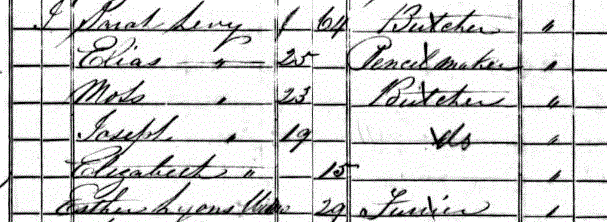 Levy 64 Butcher "
Elias " 25 Pencil maker "
Moss " 23 Butcher "
Joseph " 19 do "
Elizabeth " 15 "
Esther Lyons 29 Furrier "